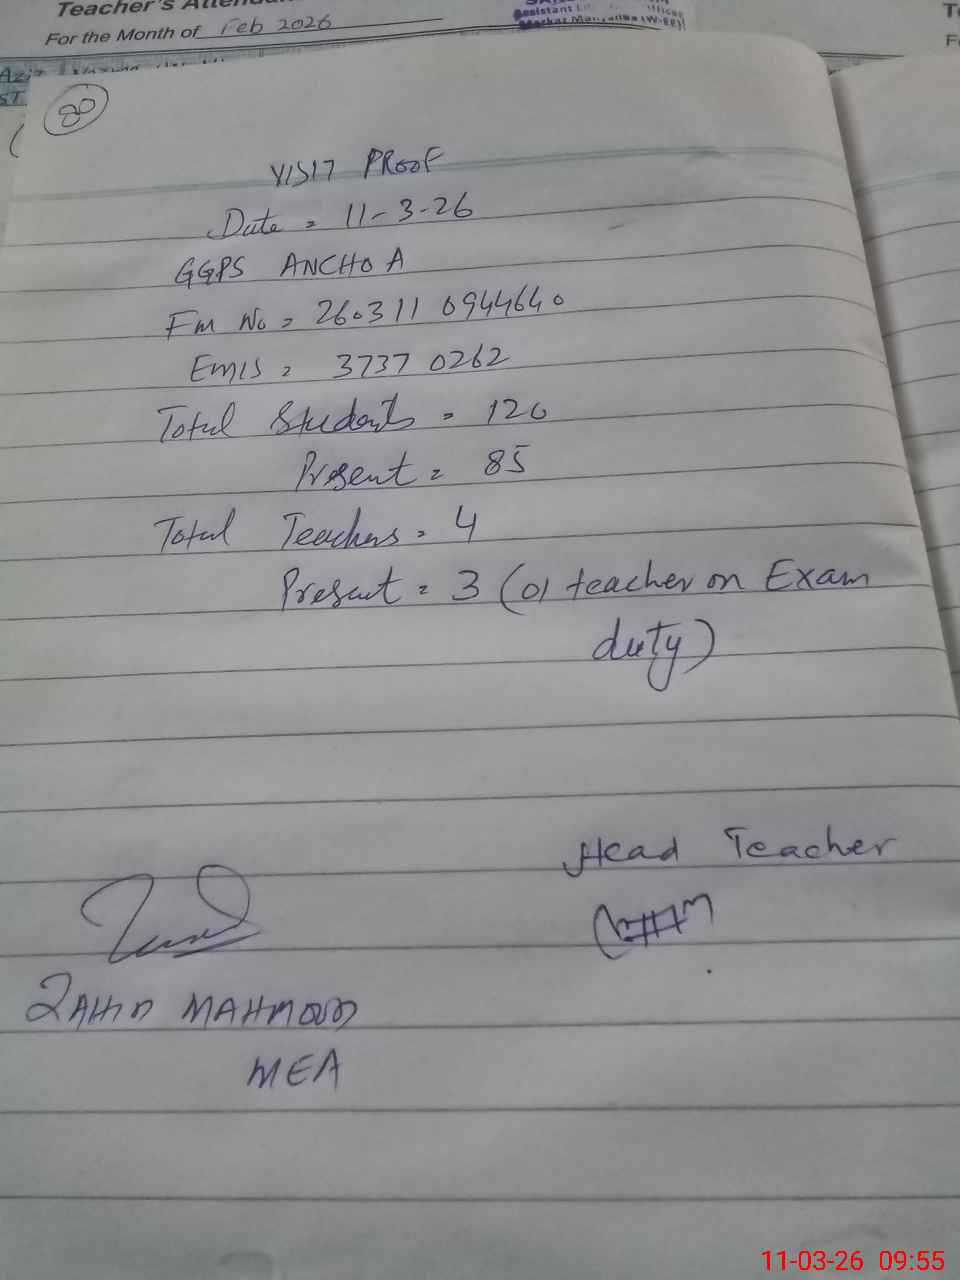 Teacher's
For the Month of Feb 2026
Assistant
Markaz
(W-EE)
80
VISIT PROOF
Date = 11-3-26
GGPS ANCHOA
Em No = 260311 0944640
EMIS = 3737 0262
Total Students = 120
Present = 85
Total Teachers = 4
Present = 3 (01 teacher on Exam
duty)
Head Teacher
MAHMOOD
MEA
11-03-26 09:55